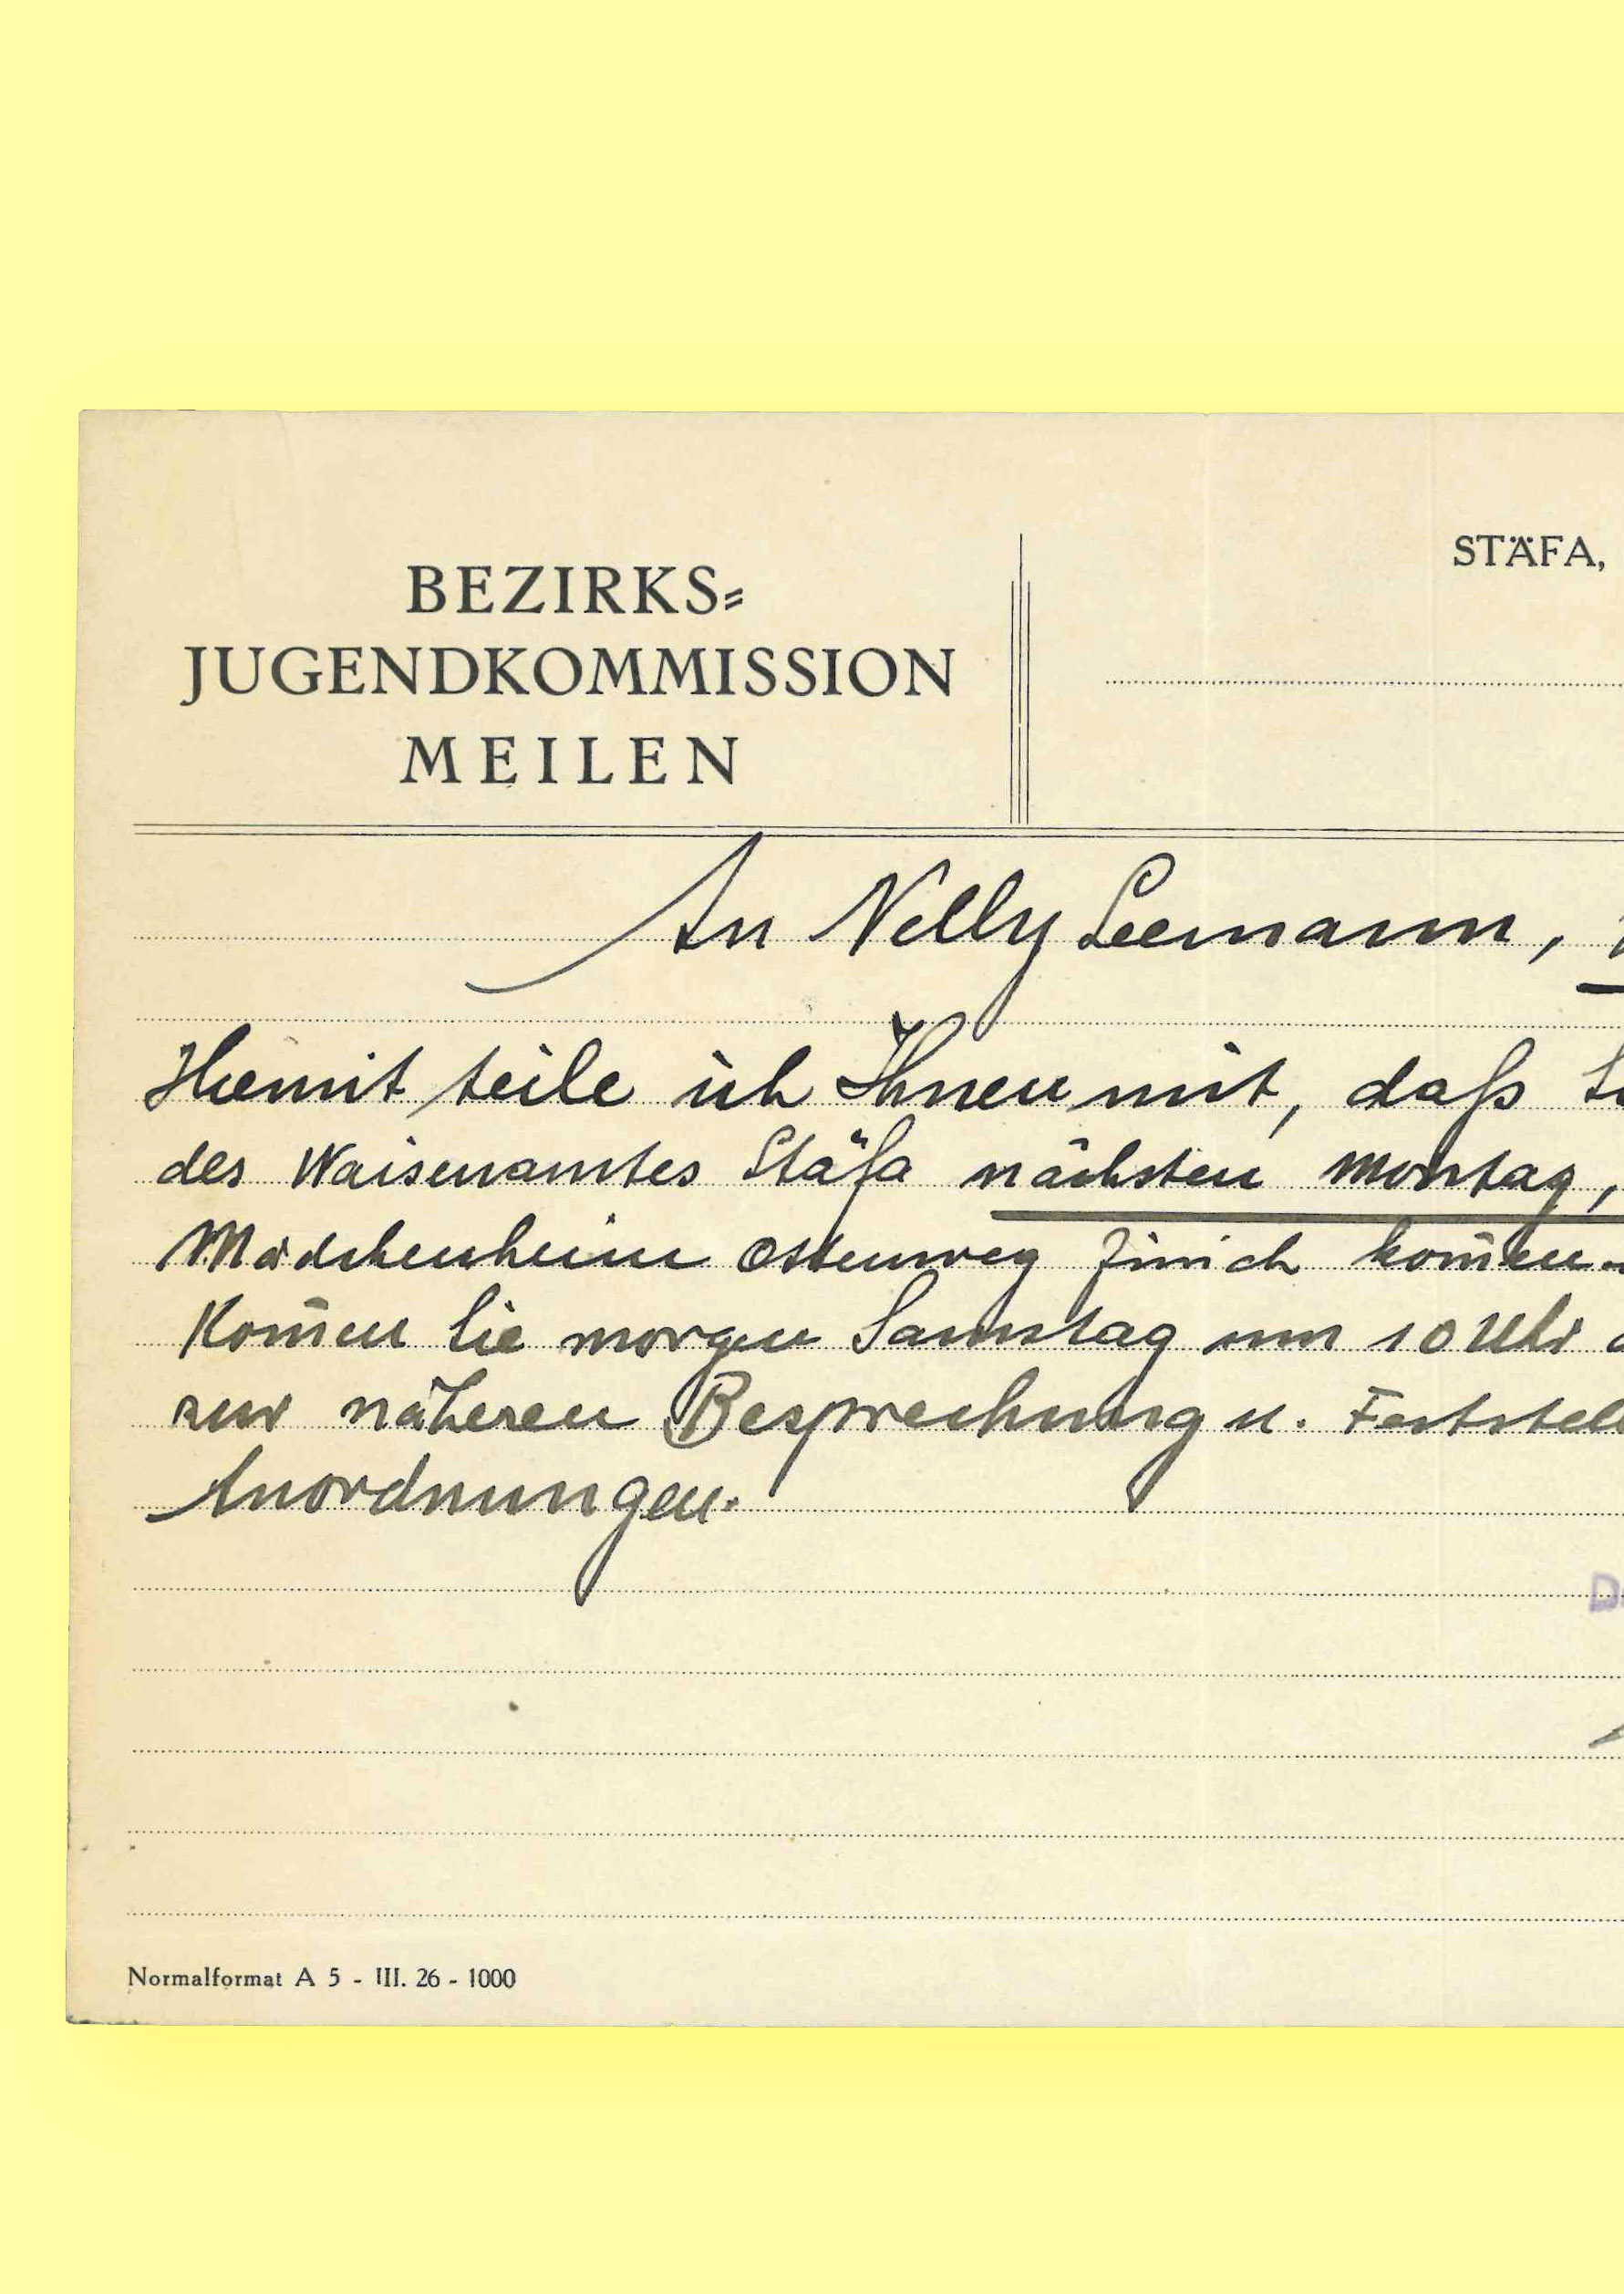 BEZIRKS=
JUGENDKOMMISSION
MEILEN
STÄFA,
An Nelly Leemann,
Hiemit teile ich Ihnen mit, daß
des Waisenamtes Stäfa nächsten Montag,
Mädchenheim Ostenweg Zürich kom̄en
Kom̄en Sie morgen Samstag um 10 Uhr
zur näheren Besprechung u. Festst
Anordnungen.
Normalformat A 5 - III. 26 - 1000